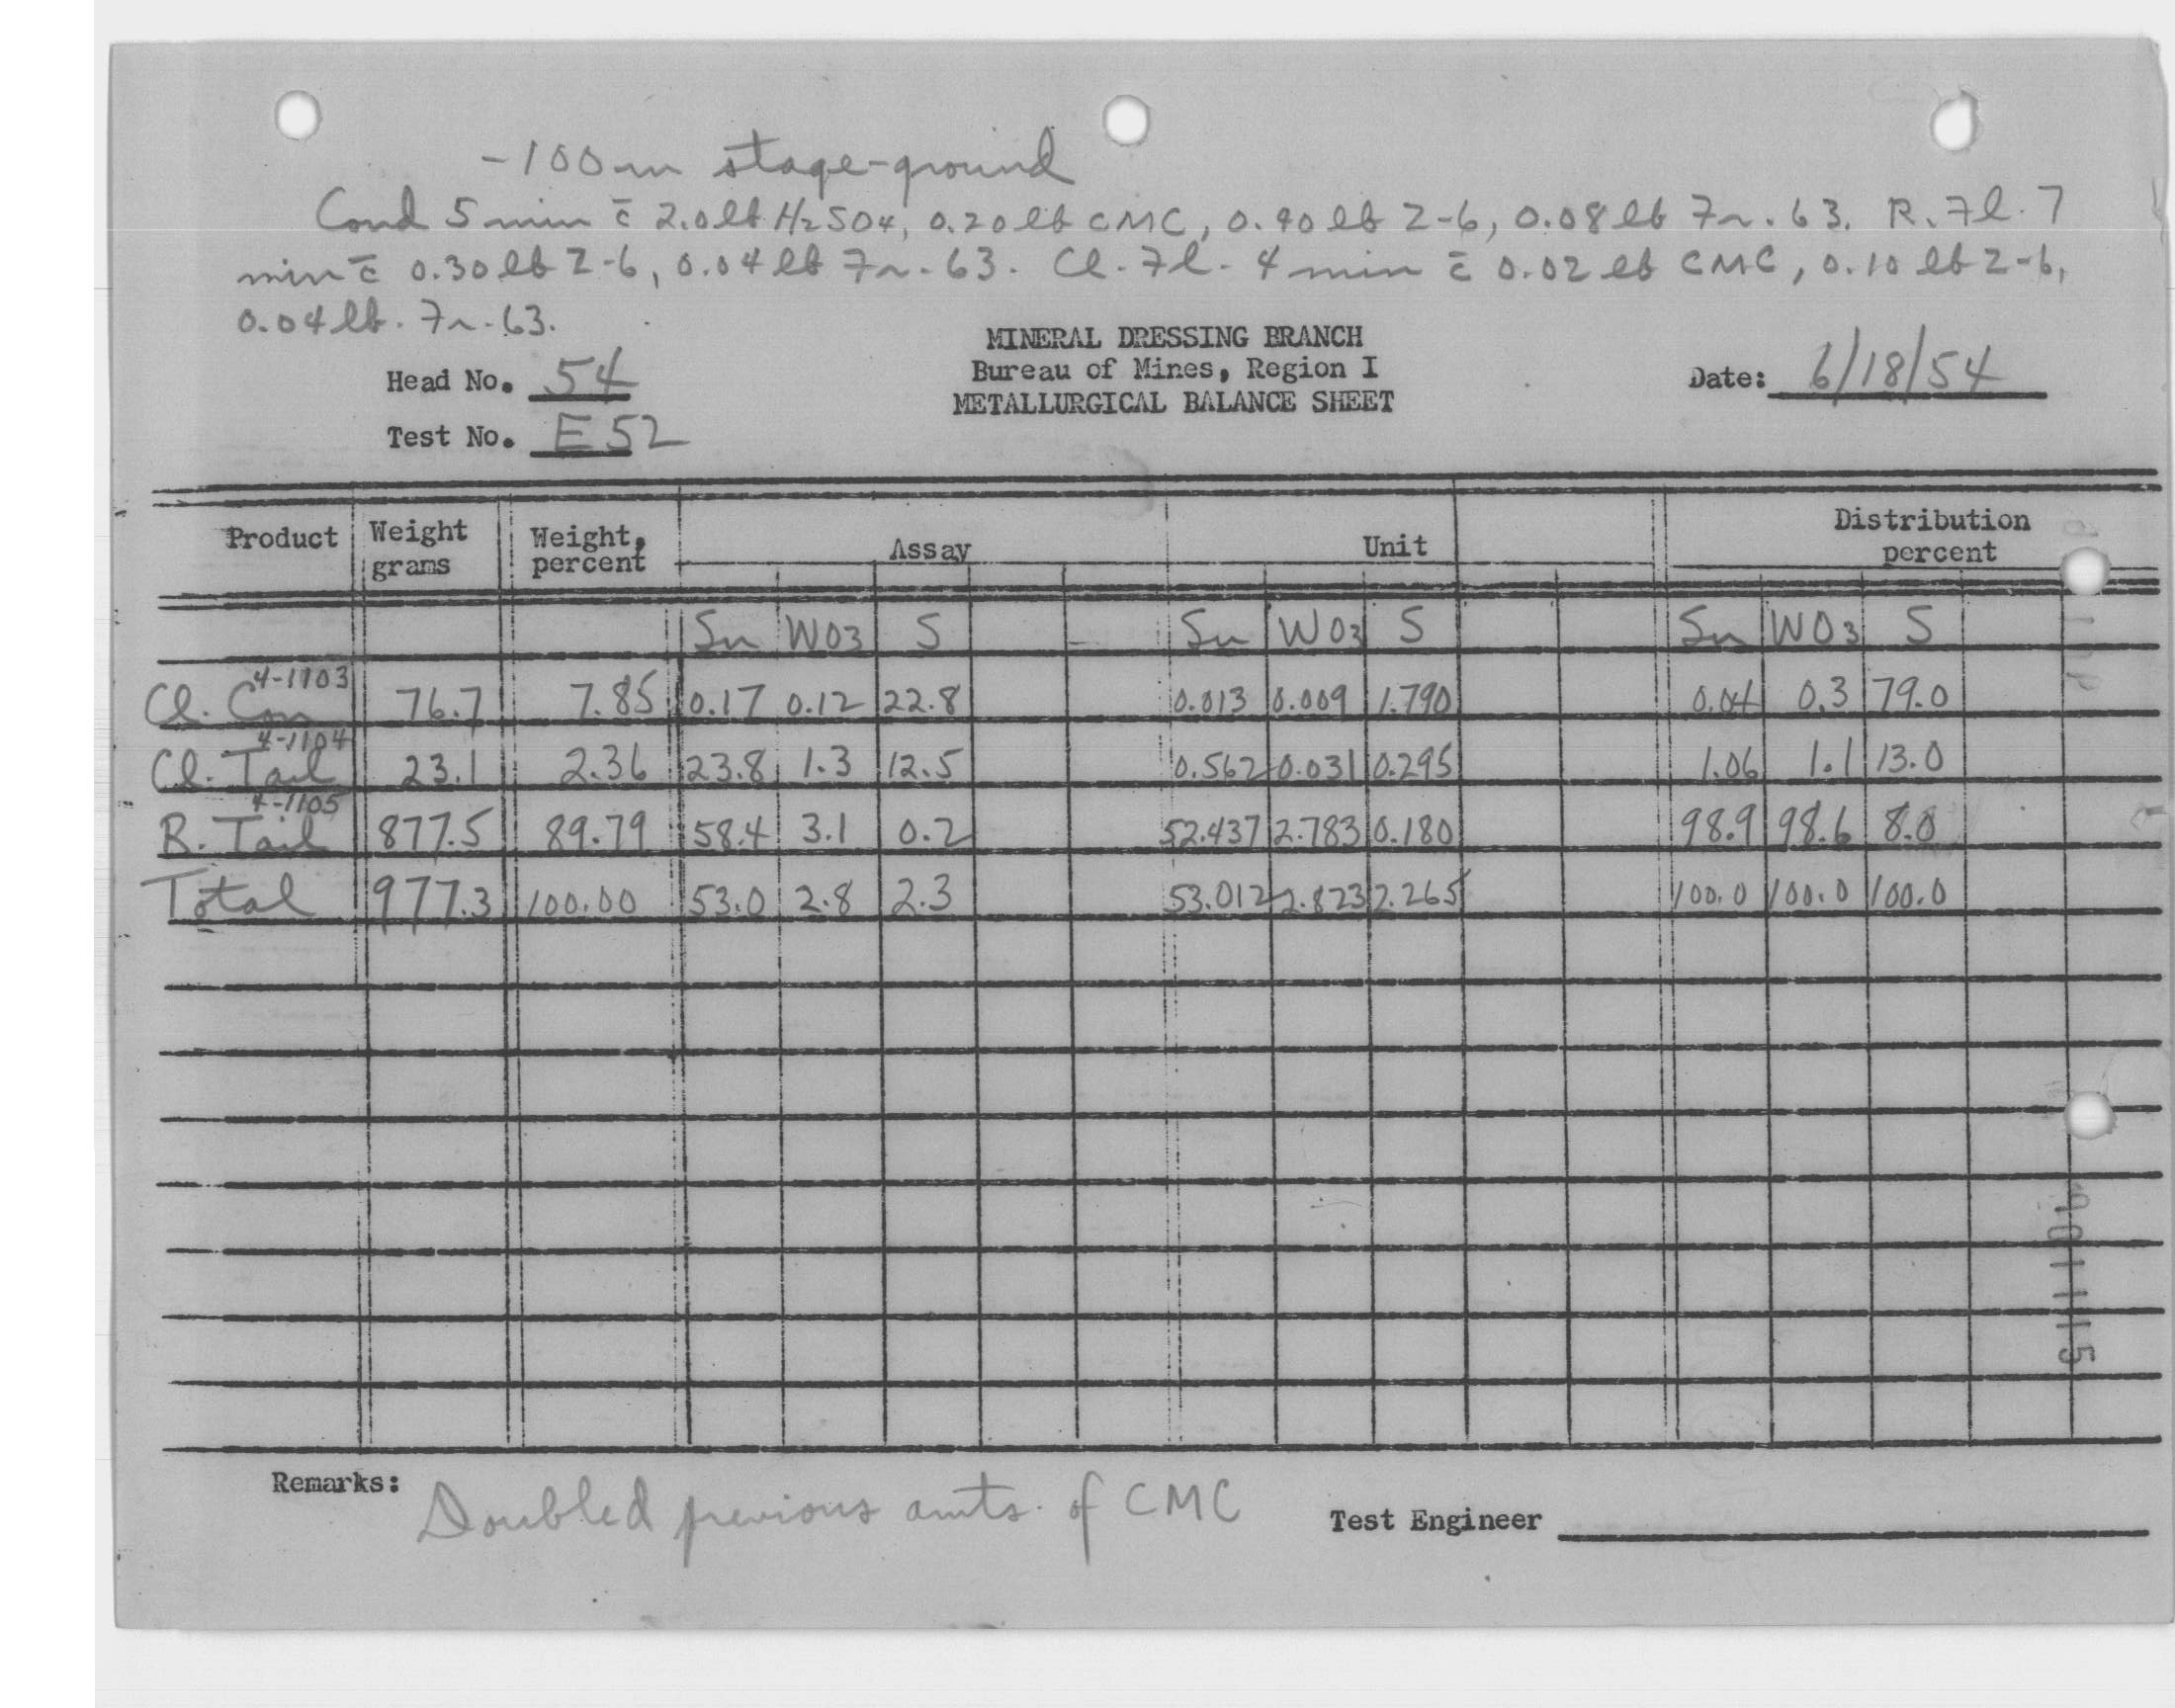 -100m stage-ground
Cond 5 min c̄ 2.0 lb H2SO4, 0.20 lb CMC, 0.90 lb Z-6, 0.08 lb Fr. 63. R. Fl. 7
min c̄ 0.30 lb Z-6, 0.04 lb Fr. 63. Cl. Fl. 4 min c̄ 0.02 lb CMC, 0.10 lb Z-6,
0.04 lb. Fr. 63.
MINERAL DRESSING BRANCH
Head No. 54 Bureau of Mines, Region I Date: 6/18/54
METALLURGICAL BALANCE SHEET
Test No. E52
Product Weight grams Weight, percent Assay Unit Distribution percent
Sn WO3 S Sn WO3 S Sn WO3 S
4-1103
Cl. Con 76.7 7.85 0.17 0.12 22.8 0.013 0.009 1.790 0.04 0.3 79.0
4-1104
Cl. Tail 23.1 2.36 23.8 1.3 12.5 0.562 0.031 0.295 1.06 1.1 13.0
4-1105
R. Tail 877.5 89.79 58.4 3.1 0.2 52.437 2.783 0.180 98.9 98.6 8.0
Total 977.3 100.00 53.0 2.8 2.3 53.012 2.823 2.265 100.0 100.0 100.0
Remarks: Doubled previous amts. of CMC
Test Engineer